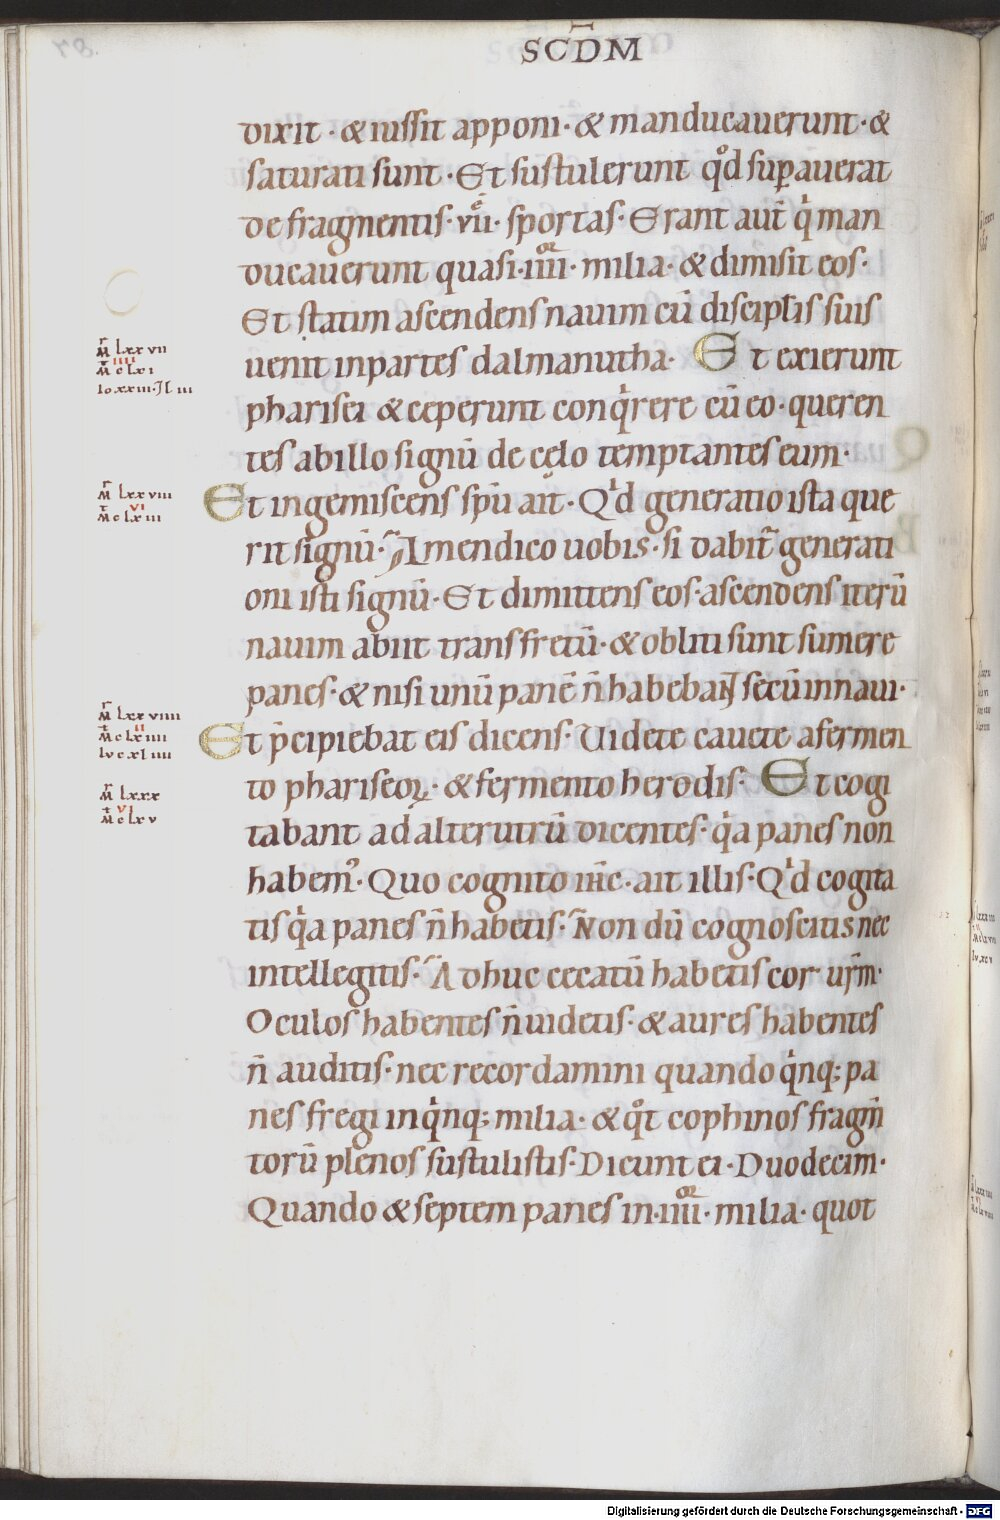 SCD̅M
dixit · & iussit apponi · & manducauerunt · &
saturati sunt · Et sustulerunt qd̊ suꝑauerat
de fragmentis · vii · sportas · Erant aut̅ qͥ man
ducauerunt quasi · iiii · milia · & dimisit eos ·
Et statim ascendens nauim cū discipłis suis
uenit inpartes dalmanutha · Et exierunt
pharisei & ceperunt conqͥrere cū eo · queren
tes abillo signū de cęlo temptantes eum ·
Et ingemiscens sp̅u ait · Qͥd generatio ista que
rit signū · Amendico uobis · si dabit̅ generati
oni isti signū · Et dimittens eos · ascendens iterū
nauim abiit transfretū · & obliti sunt sumere
panes · & nisi unū panē n̅ habebant secū innaui ·
Et p̅cipiebat eis dicens · Uidete cauete afermen
to phariseoꝝ · & fermento herodis · Et cogi
tabant ad alterutrū dicentes · qͥa panes non
habemꝰ · Quo cognito ih̅c · ait illis · Qͥd cogita
tis qͥa panes n̅ habetis · Non dū cognoscitis nec
intellegitis · Adhuc cecatū habetis cor ur̅m ·
Oculos habentes n̅ uidetis · & aures habentes
n̅ auditis · nec recordamini quando qͥnq; pa
nes fregi inqͥnq; milia · & qͦt cophinos fragm̅
torū plenos sustulistis · Dicunt ei · Duodecim ·
Quando & septem panes in · iiii · milia · quot
ṁ lxxvii
iiii
ṁclxi
ṁ lxxviii
vi
ṁclxiii
ṁ lxxviiii
ii
ṁclxiiii
lvcxliiii
ṁ lxxx
vi
ṁclxv
Digitalisierung gefördert durch die Deutsche Forschungsgemeinschaft - DFG